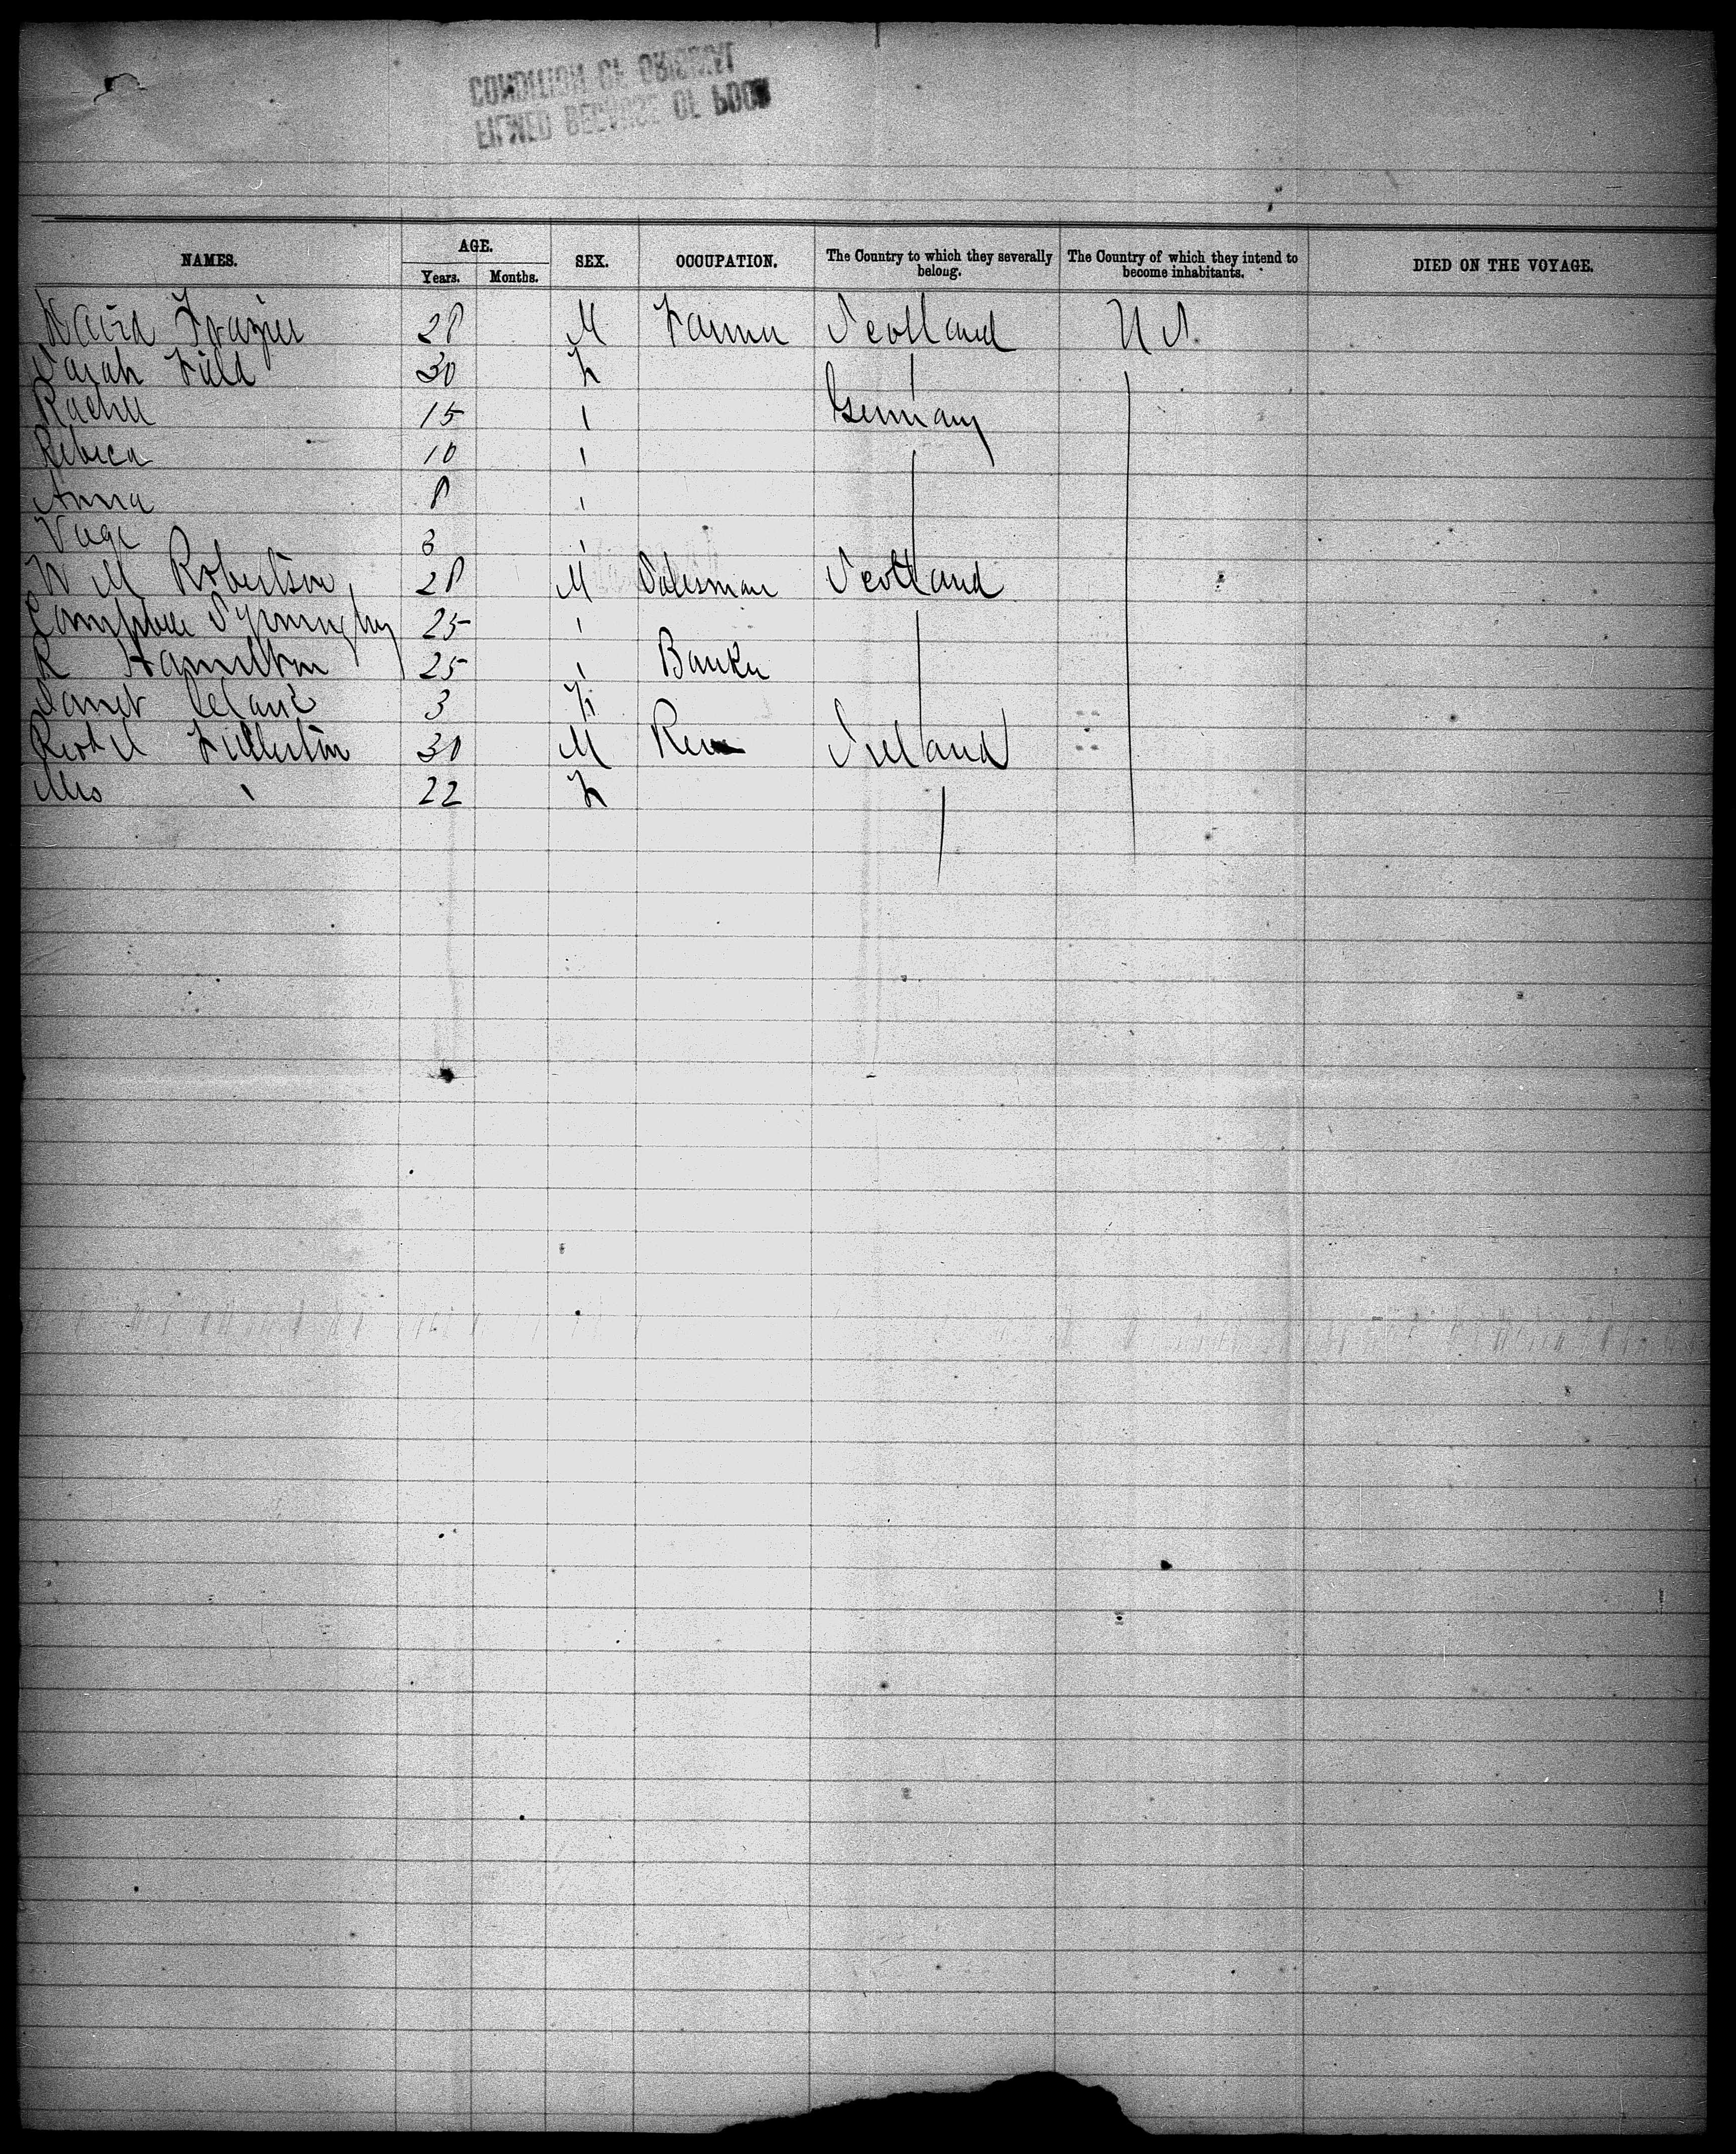 CONDITION OF ORIGINAL
FILMED BECAUSE OF POOR
NAMES. AGE. Years. Months. SEX. OCCUPATION. The Country to which they severally belong. The Country of which they intend to become inhabitants. DIED ON THE VOYAGE.
David Frazier 28 M Farmer Scotland U S.
Sarah Field 30 F
Rachel 15 " Germany
Rebeca 10 "
Anna 8 "
3 "
W M Robertson 28 M Salesman Scotland
Campbell 25 "
R Hamilton 25 " Banker
Janet 3 F
Robt Fullerton 30 M Rev Ireland
Mrs " 22 F